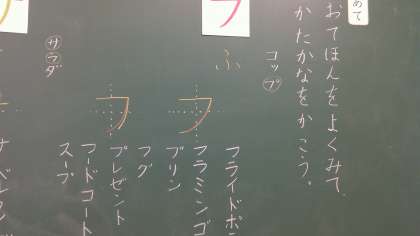 めて
おてほんをよくみて、
かたかなをかこう。
コップ
フ
ふ
フ
フライドポ
フラミンゴ
プリン
フグ
フ
プレゼント
フードコート
スープ
サラダ